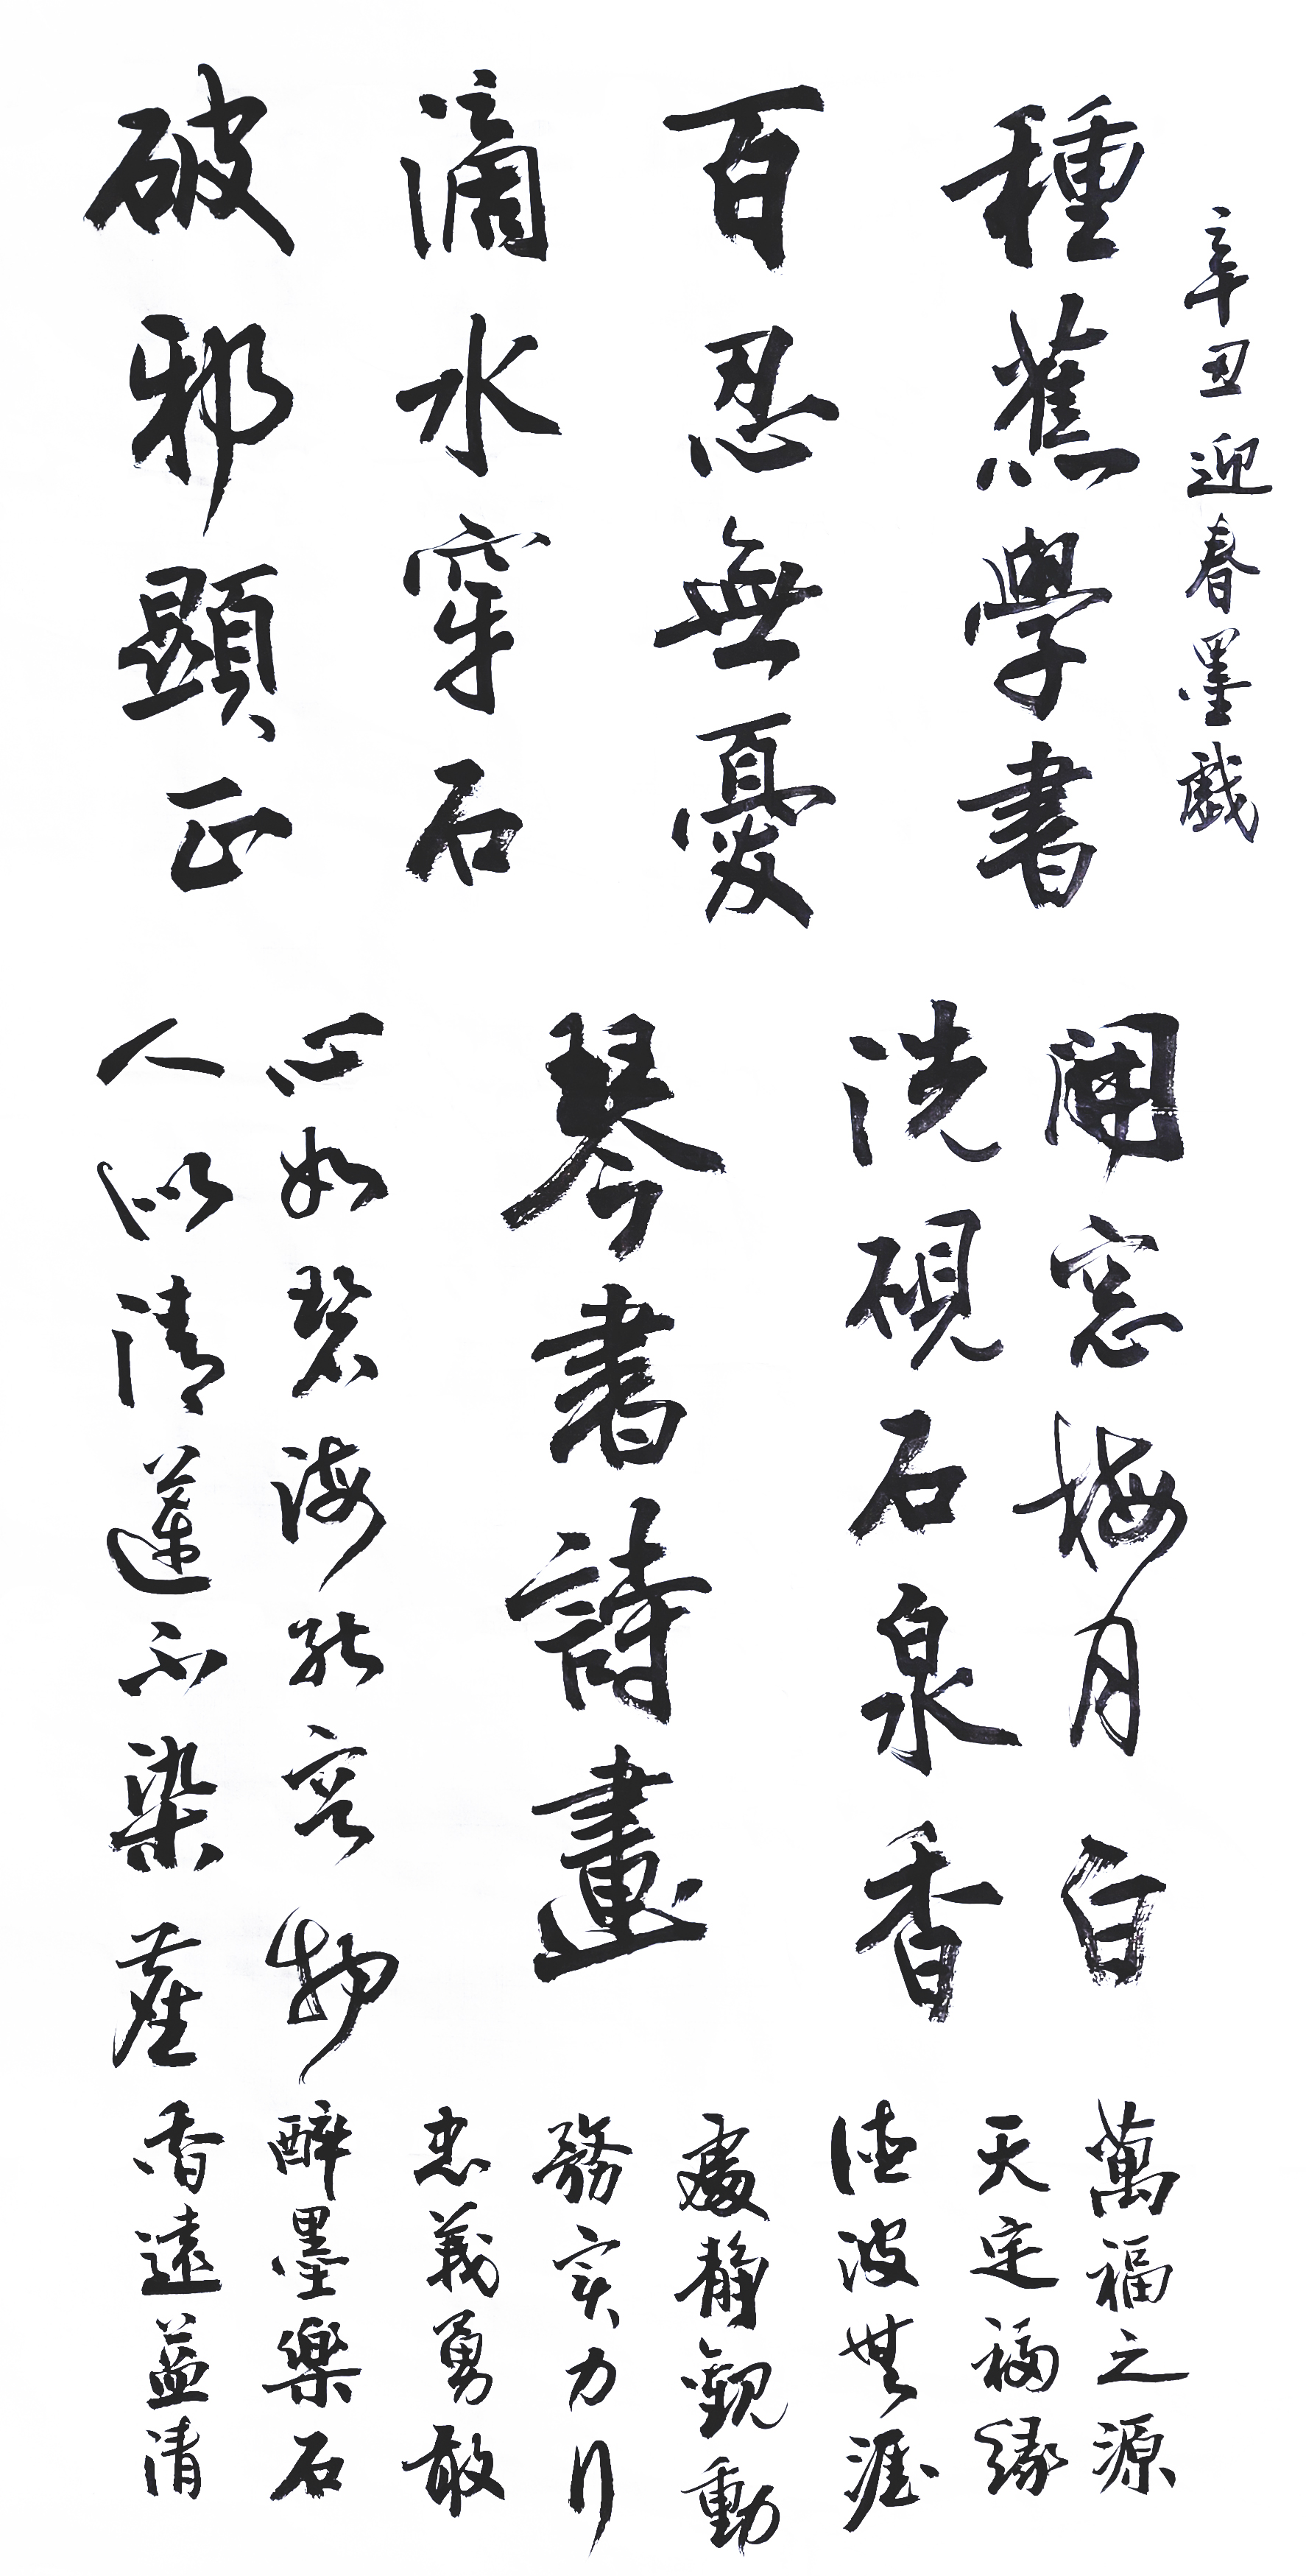 辛丑迎春墨戲
種蕉學書
百忍無憂
滴水穿石
破邪顯正
開窓梅月白
洗硯石泉香
琴書詩畫
心如碧海能容物
人似清蓮不染塵
萬福之源
天定福緣
德波無涯
處靜觀動
務实力行
忠義勇敢
醉墨樂石
香遠益清